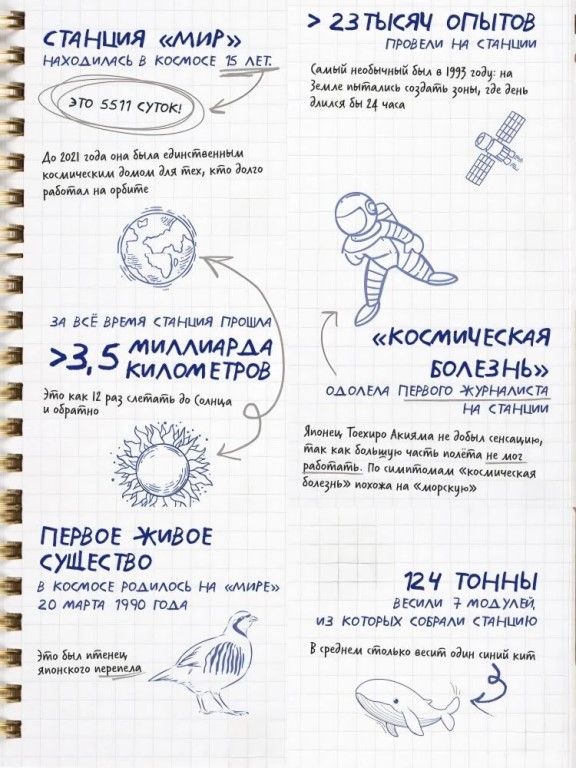 СТАНЦИЯ «МИР»
НАХОДИЛАСЬ В КОСМОСЕ 15 ЛЕТ.
ЭТО 5511 СУТОК!
До 2021 года она была единственным
космическим домом для тех, кто долго
работал на орбите
ЗА ВСЁ ВРЕМЯ СТАНЦИЯ ПРОШЛА
>3,5 МИЛЛИАРДА
КИЛОМЕТРОВ
Это как 12 раз слетать до Солнца
и обратно
ПЕРВОЕ ЖИВОЕ
СУЩЕСТВО
В КОСМОСЕ РОДИЛОСЬ НА «МИРЕ»
20 МАРТА 1990 ГОДА
Это был птенец
японского перепела
> 23 ТЫСЯЧ ОПЫТОВ
ПРОВЕЛИ НА СТАНЦИИ
Самый необычный был в 1993 году: на
Земле пытались создать зоны, где день
длился бы 24 часа
«КОСМИЧЕСКАЯ
БОЛЕЗНЬ»
ОДОЛЕЛА ПЕРВОГО ЖУРНАЛИСТА
НА СТАНЦИИ
Японец Тоехиро Акияма не добыл сенсацию,
так как большую часть полёта не мог
работать. По симптомам «космическая
болезнь» похожа на «морскую»
124 ТОННЫ
ВЕСИЛИ 7 МОДУЛЕЙ,
ИЗ КОТОРЫХ СОБРАЛИ СТАНЦИЮ
В среднем столько весит один синий кит